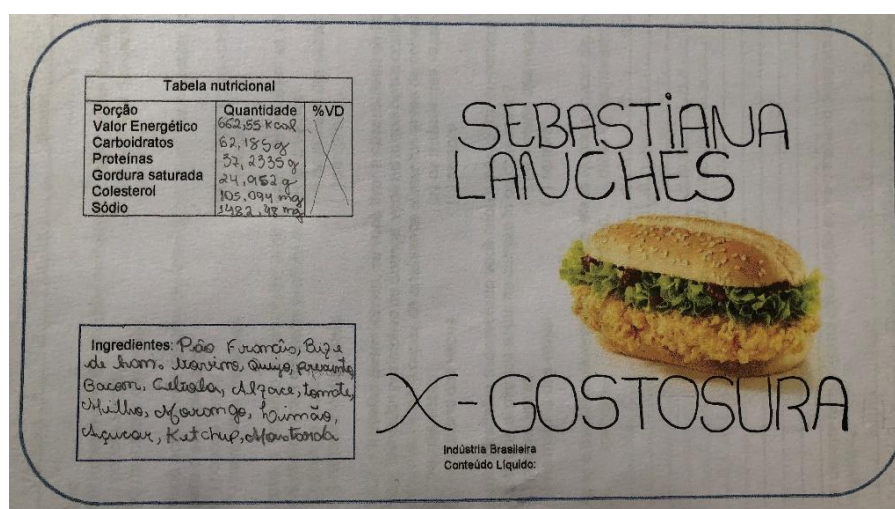 Tabela nutricional
Porção Quantidade %VD
Valor Energético 662,55 Kcal
Carboidratos 62,185g
Proteínas 37,2335g
Gordura saturada 24,952 g
Colesterol 105,094 mg
Sódio 1482,48 mg
SEBASTIANA
LANCHES
Ingredientes: Pão Francês,
de Queijo, presunto,
Bacon, Cebola, Alface, tomate,
Milho, Morango, Limão,
Açucar, Ketchup, Mostarda
X-GOSTOSURA
Indústria Brasileira
Conteúdo Líquido: